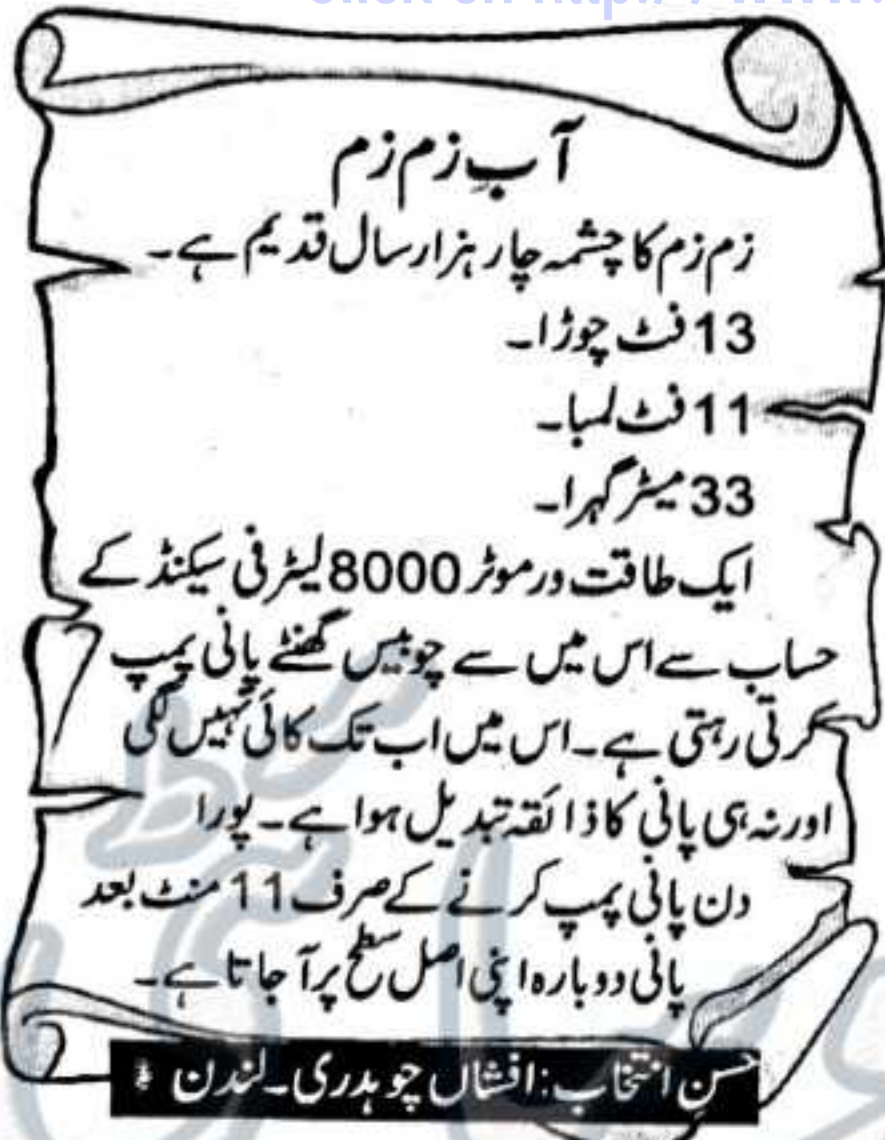 Click on http://www.
آبِ زم زم
زم زم کا چشمہ چار ہزار سال قدیم ہے۔
13 فٹ چوڑا۔
11 فٹ لمبا۔
33 میٹر گہرا۔
ایک طاقت ور موٹر 8000 لیٹر فی سیکنڈ کے
حساب سے اس میں سے چوبیس گھنٹے پانی پمپ
کرتی رہتی ہے۔ اس میں اب تک کائی نہیں لگی
اور نہ ہی پانی کا ذائقہ تبدیل ہوا ہے۔ پورا
دن پانی پمپ کرنے کے صرف 11 منٹ بعد
پانی دوبارہ اپنی اصل سطح پر آ جاتا ہے۔
حسنِ انتخاب: افشاں چوہدری۔ لندن